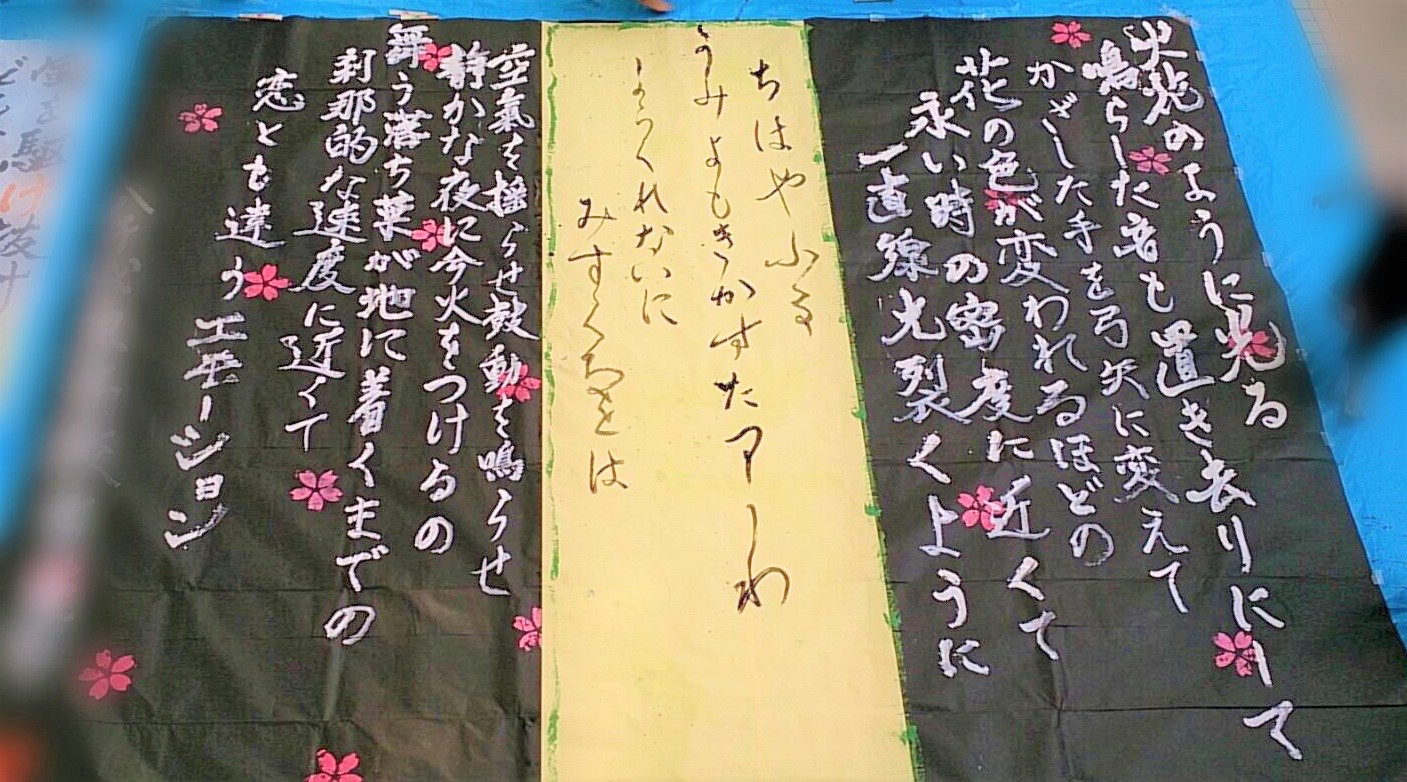 火花のように光る
鳴らした音も置き去りにして
かざした手を弓矢に変えて
花の色が変われるほどの
永い時の密度に近くて
一直線光裂くように
ちはやふる
かみよもきかすた
からくれないに
みすくゝるとは
空氣を揺らせ鼓動を鳴らせ
静かな夜に今火をつけるの
舞う落ち葉が地に着くまでの
刹那的な速度に近くて
恋とも違うエモーション